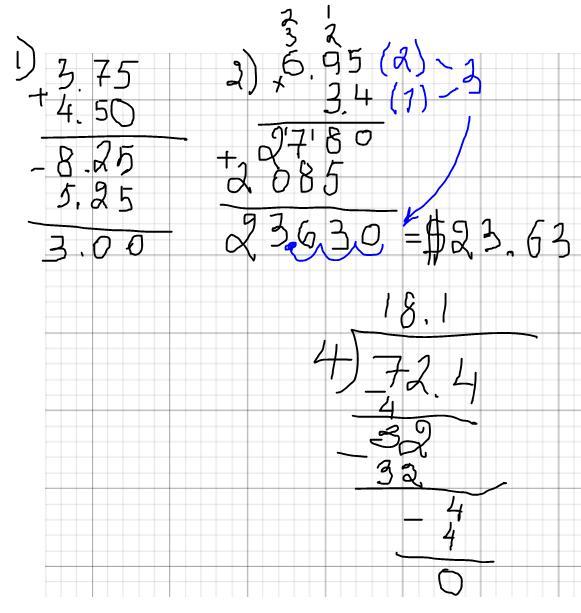 1)
3.75
+ 4.50
- 8.25
5.25
3.00
2)
2 1
3 2
6.95 (2) - 3
x 3.4 (1) -
2780
+ 2085
23.630 = $23.63
18.1
4)72.4
- 4
32
- 32
- 4
4
0